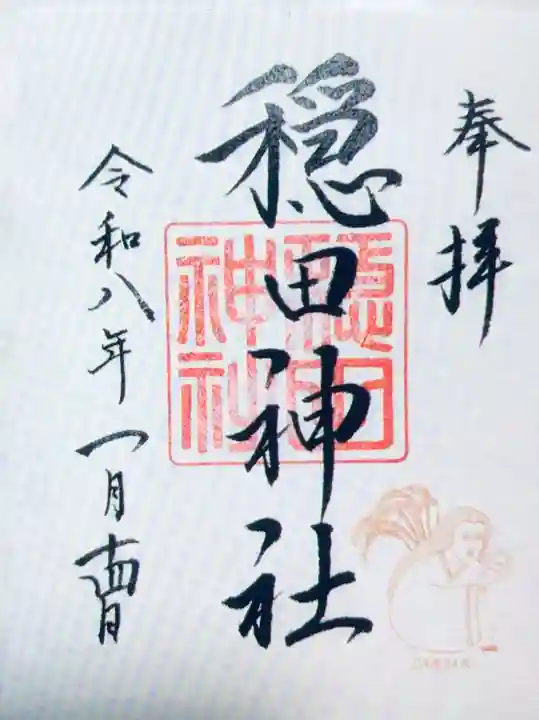 奉拝
穏田神社
穏田
神社
令和八年一月十四日